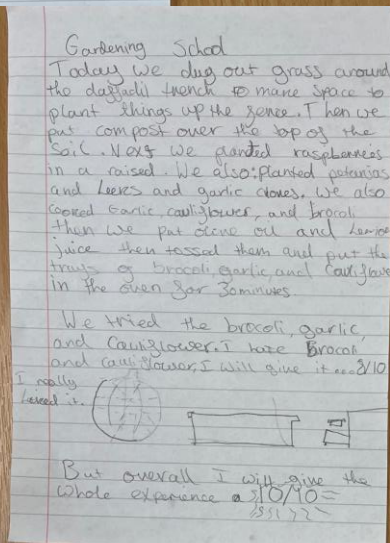 Gardening School
Today we dug out grass around
the daffadil trench to make space to
plant things up the fence. Then we
put compost over the top of the
soil. Next we planted raspberries
in a raised. We also planted petunias
and leekes and garlic cloves. We also
cooked Garlic, cauliflower, and brocoli
then we put olive oil and lemon
juice then tossed them and put the
trays of brocoli, garlic, and Cauliflower
in the oven for 30 minutes.
We tried the brocoli, garlic,
and Cauliflower. I hate Brocoli
and cauliflower, I will give it... 2/10
I really
hated it.
But overall I will give the
whole experience a 10/10